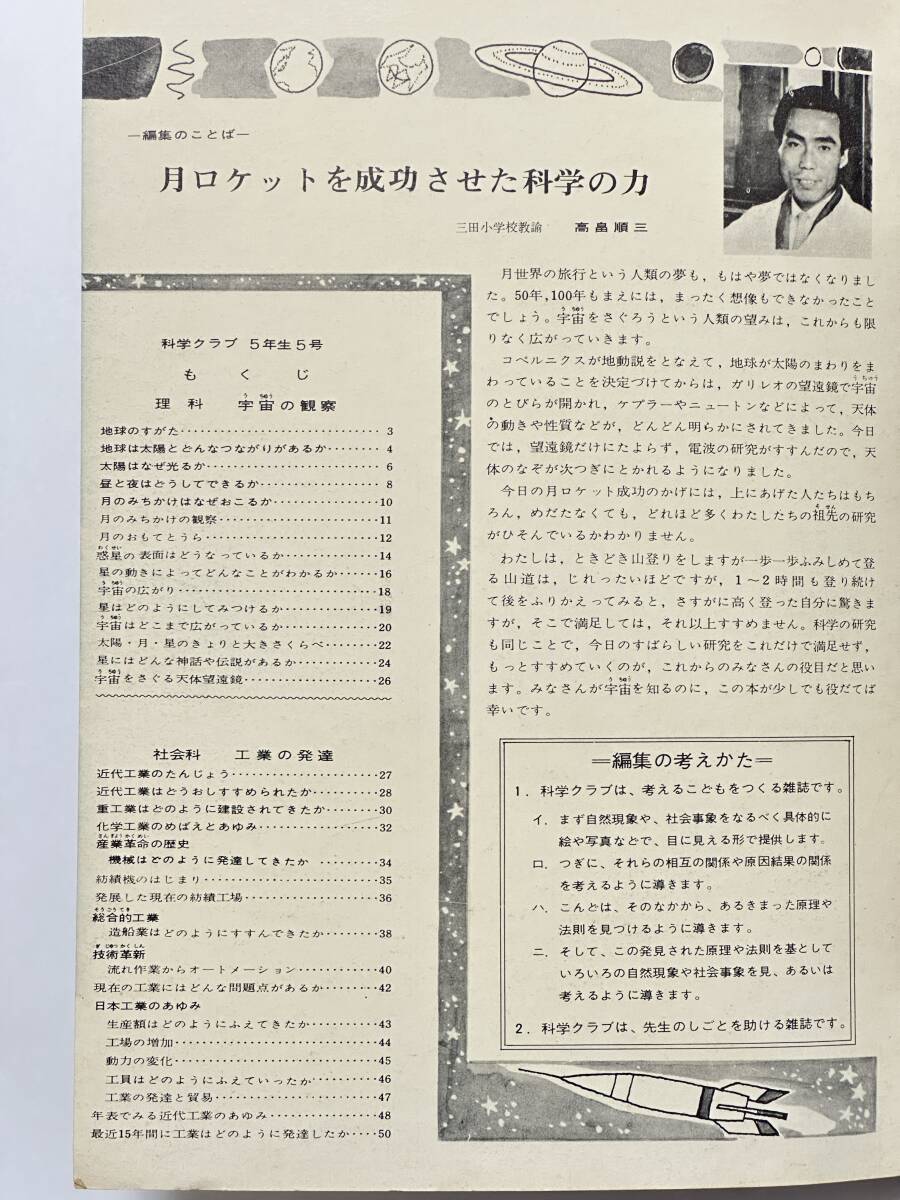 ―編集のことば―
月ロケットを成功させた科学の力
三田小学校教諭 高畠順三
月世界の旅行という人類の夢も，もはや夢ではなくなりまし
た。50年，100年もまえには，まったく想像もできなかったこと
でしょう。宇宙をさぐろうという人類の望みは，これからも限
りなく広がっていきます。
コペルニクスが地動説をとなえて，地球が太陽のまわりをま
わっていることを決定づけてからは，ガリレオの望遠鏡で宇宙
のとびらが開かれ，ケプラーやニュートンなどによって，天体
の動きや性質などが，どんどん明らかにされてきました。今日
では，望遠鏡だけにたよらず，電波の研究がすすんだので，天
体のなぞが次つぎにとかれるようになりました。
今日の月ロケット成功のかげには，上にあげた人たちはもち
ろん，めだたなくても，どれほど多くわたしたちの祖先の研究
がひそんでいるかわかりません。
わたしは，ときどき山登りをしますが一歩一歩ふみしめて登
る山道は，じれったいほどですが，1～2時間も登り続け
て後をふりかえってみると，さすがに高く登った自分に驚きま
すが，そこで満足しては，それ以上すすめません。科学の研究
も同じことで，今日のすばらしい研究をこれだけで満足せず，
もっとすすめていくのが，これからのみなさんの役目だと思い
ます。みなさんが宇宙を知るのに，この本が少しでも役だてば
幸いです。
科学クラブ 5年生5号
もくじ
理科 宇宙の観察
地球のすがた……………………3
地球は太陽とどんなつながりがあるか………4
太陽はなぜ光るか……………………6
昼と夜はどうしてできるか……………………8
月のみちかけはなぜおこるか……………10
月のみちかけの観察……………………11
月のおもてとうら……………………12
惑星の表面はどうなっているか……………14
星の動きによってどんなことがわかるか……16
宇宙の広がり……………………18
星はどのようにしてみつけるか……………19
宇宙はどこまで広がっているか……………20
太陽・月・星のきょりと大きさくらべ………22
星にはどんな神話や伝説があるか…………24
宇宙をさぐる天体望遠鏡……………………26
社会科 工業の発達
近代工業のたんじょう……………………27
近代工業はどうおしすすめられたか…………28
重工業はどのように建設されてきたか………30
化学工業のめばえとあゆみ……………………32
産業革命の歴史
機械はどのように発達してきたか…………34
紡績機のはじまり……………………35
発展した現在の紡績工場……………………36
総合的工業
造船業はどのようにすすんできたか………38
技術革新
流れ作業からオートメーション…………40
現在の工業にはどんな問題点があるか………42
日本工業のあゆみ
生産額はどのようにふえてきたか…………43
工場の増加……………………44
動力の変化……………………45
工員はどのようにふえていったか…………46
工業の発達と貿易……………………47
年表でみる近代工業のあゆみ………………48
最近15年間に工業はどのように発達したか……50
＝編集の考えかた＝
1．科学クラブは、考えるこどもをつくる雑誌です。
イ．まず自然現象や、社会事象をなるべく具体的に
絵や写真などで、目に見える形で提供します。
ロ．つぎに、それらの相互の関係や原因結果の関係
を考えるように導きます。
ハ．こんどは、そのなかから、あるきまった原理や
法則を見つけるように導きます。
ニ．そして、この発見された原理や法則を基として
いろいろの自然現象や社会事象を見、あるいは
考えるように導きます。
2．科学クラブは、先生のしごとを助ける雑誌です。